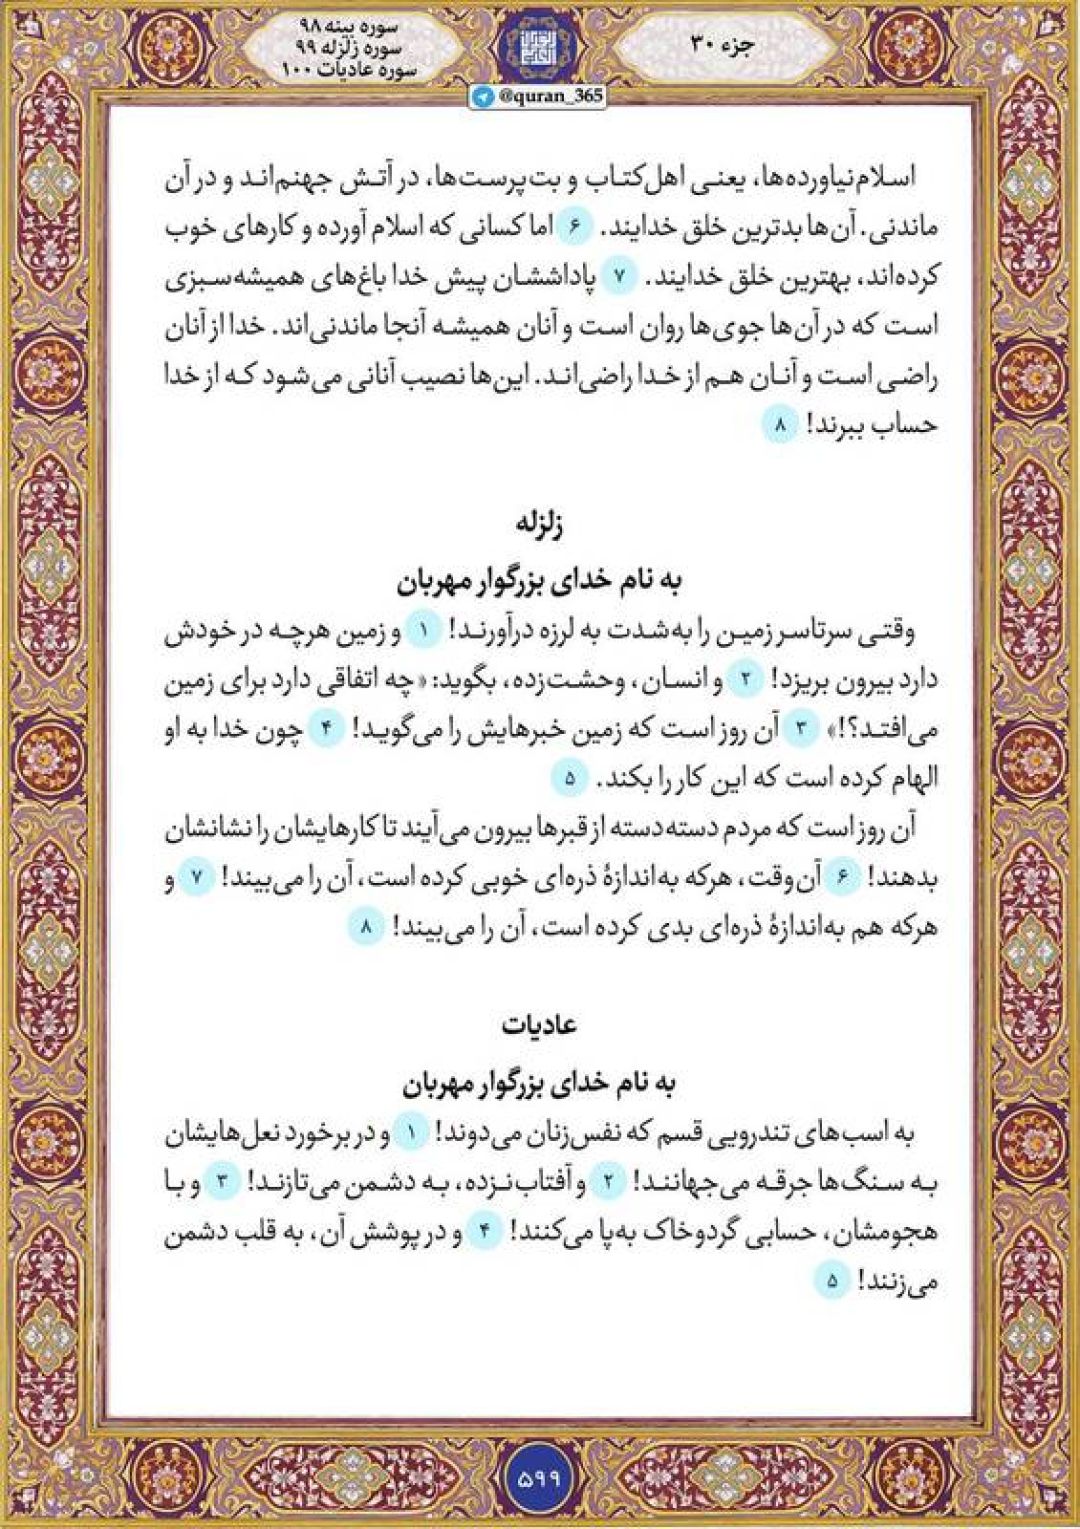 سوره بینه ۹۸
سوره زلزله ۹۹
سوره عادیات ۱۰۰
جزء ۳۰
@quran_365
اسلام‌نیاورده‌ها، یعنی اهل‌کتاب و بت‌پرست‌ها، در آتش جهنم‌اند و در آن
ماندنی. آن‌ها بدترین خلق خدایند. ۶ اما کسانی که اسلام آورده و کارهای خوب
کرده‌اند، بهترین خلق خدایند. ۷ پاداششان پیش خدا باغ‌های همیشه‌سبزی
است که در آن‌ها جوی‌ها روان است و آنان همیشه آنجا ماندنی‌اند. خدا از آنان
راضی است و آنان هم از خدا راضی‌اند. این‌ها نصیب آنانی می‌شود که از خدا
حساب ببرند! ۸
زلزله
به نام خدای بزرگوار مهربان
وقتی سرتاسر زمین را به‌شدت به لرزه درآورند! ۱ و زمین هرچه در خودش
دارد بیرون بریزد! ۲ و انسان، وحشت‌زده، بگوید: «چه اتفاقی دارد برای زمین
می‌افتد؟!» ۳ آن روز است که زمین خبرهایش را می‌گوید! ۴ چون خدا به او
الهام کرده است که این کار را بکند. ۵
آن روز است که مردم دسته‌دسته از قبرها بیرون می‌آیند تا کارهایشان را نشانشان
بدهند! ۶ آن‌وقت، هرکه به‌اندازهٔ ذره‌ای خوبی کرده است، آن را می‌بیند! ۷ و
هرکه هم به‌اندازهٔ ذره‌ای بدی کرده است، آن را می‌بیند! ۸
عادیات
به نام خدای بزرگوار مهربان
به اسب‌های تندرویی قسم که نفس‌زنان می‌دوند! ۱ و در برخورد نعل‌هایشان
به سنگ‌ها جرقه می‌جهانند! ۲ و آفتاب‌نزده، به دشمن می‌تازند! ۳ و با
هجومشان، حسابی گردوخاک به‌پا می‌کنند! ۴ و در پوشش آن، به قلب دشمن
می‌زنند! ۵
۵۹۹